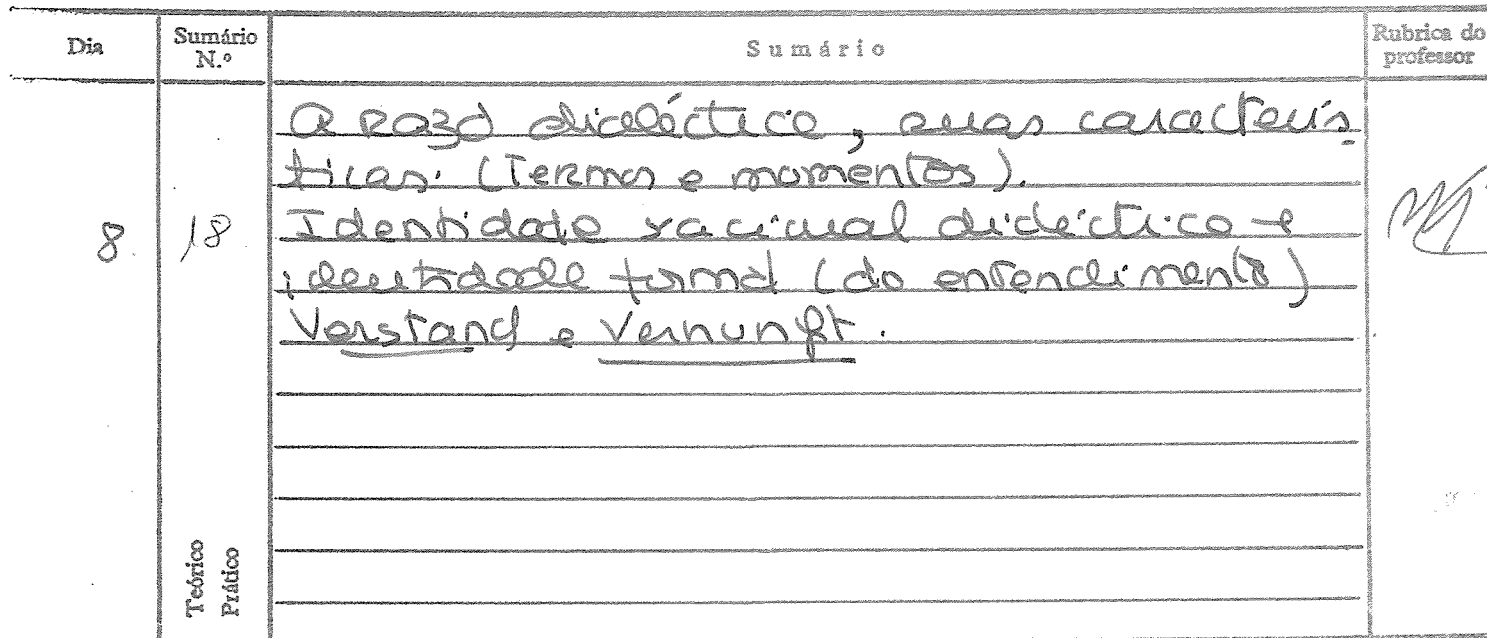 Dia
Sumário N.º
Sumário
Rubrica do professor
A Razão dialéctica, suas caracterís
ticas. (Termos e momentos).
8. 18 Identidade racional dialéctica e
identidade formal (do entendimento)
Verstand e Vernunft.
Teórico
Prático